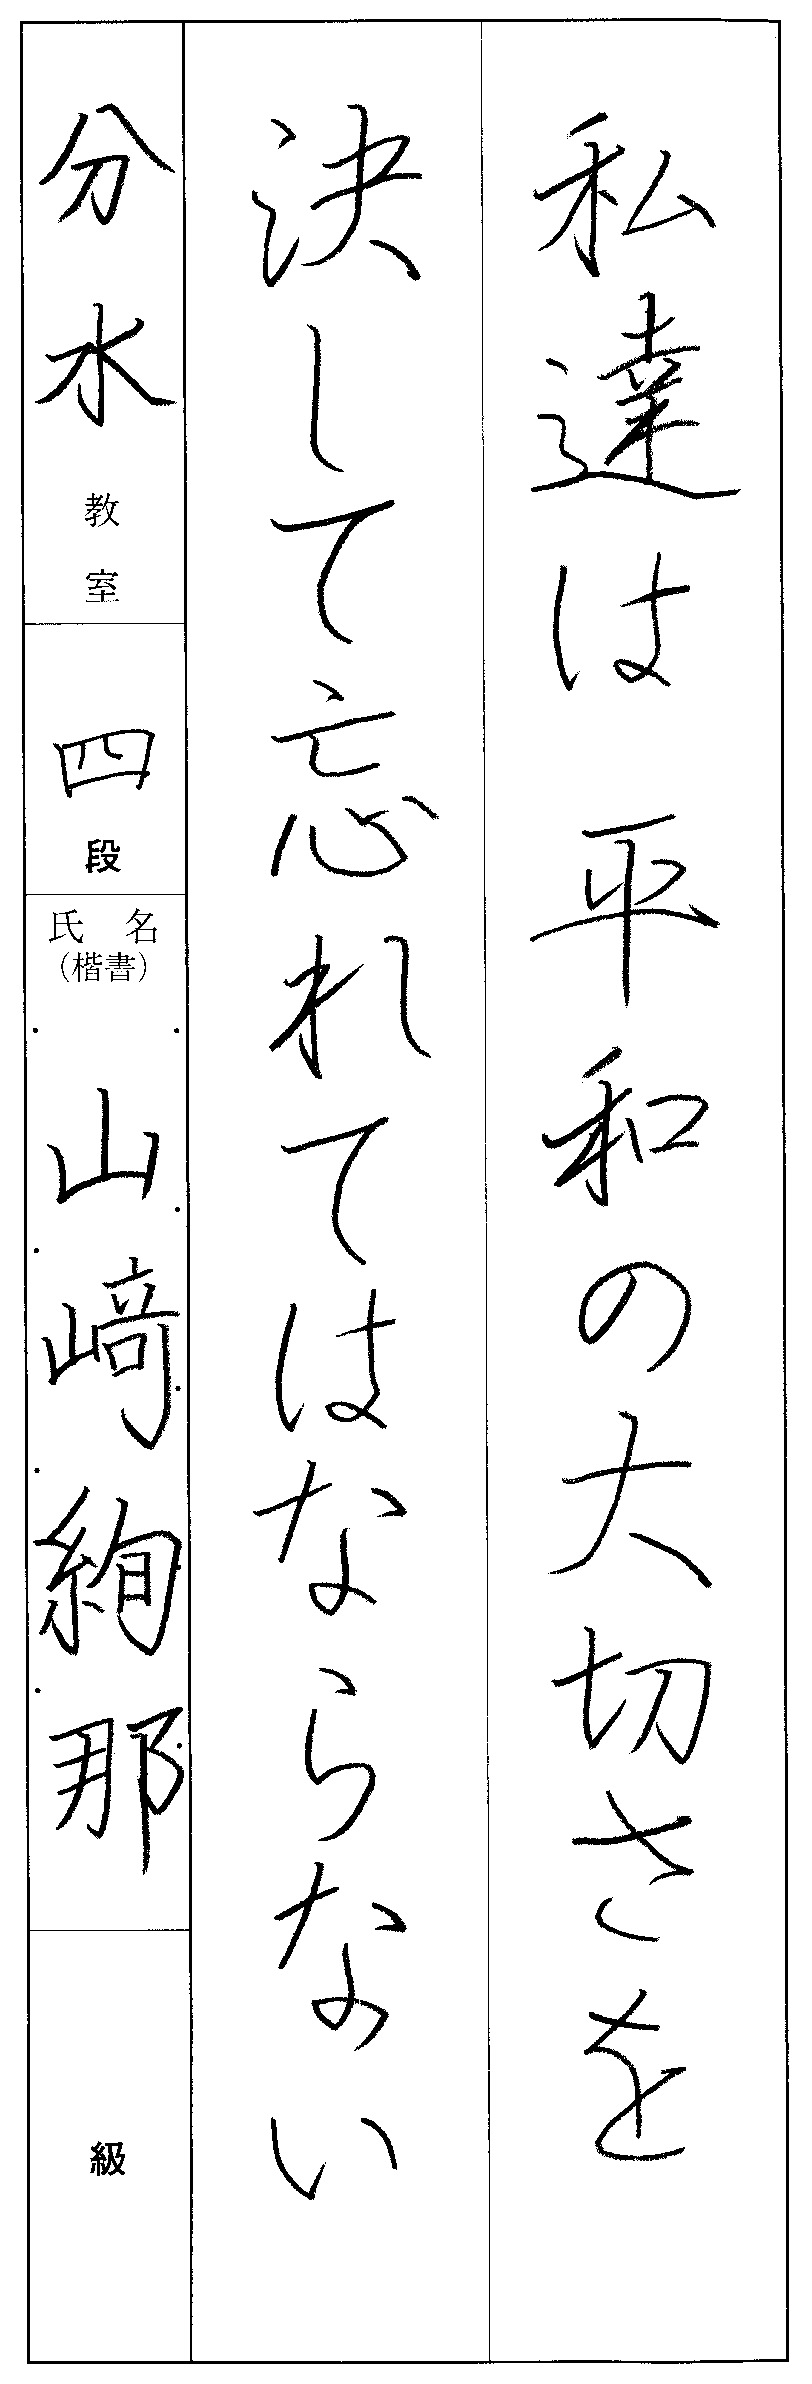 私達は平和の大切さを
決して忘れてはならない
分水教室
四段
氏名
(楷書)
山﨑絢那
級